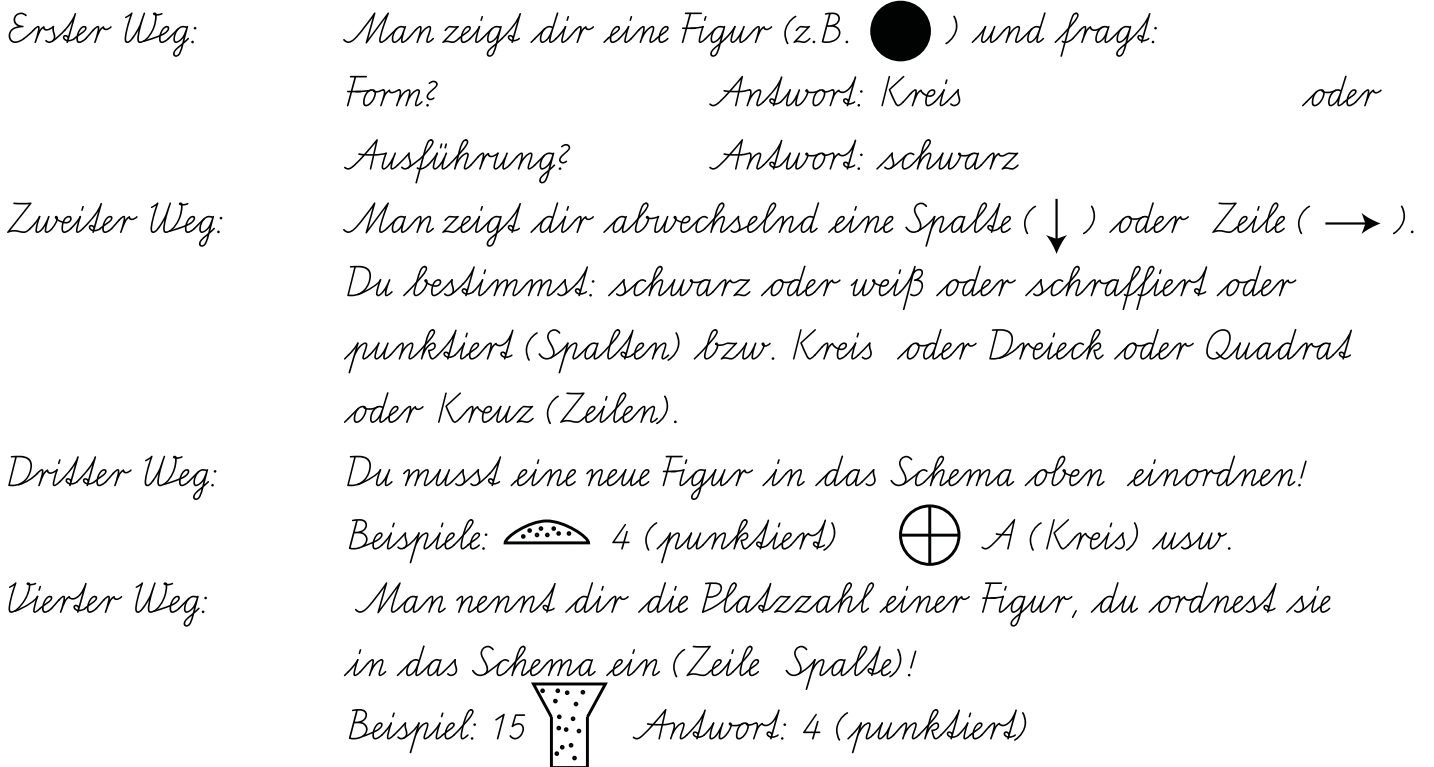 Erster Weg: Man zeigt dir eine Figur (z.B. ) und fragt:
Form? Antwort: Kreis oder
Ausführung? Antwort: schwarz
Zweiter Weg: Man zeigt dir abwechselnd eine Spalte ( ↓ ) oder Zeile ( → ).
Du bestimmst: schwarz oder weiß oder schraffiert oder
punktiert (Spalten) bzw. Kreis oder Dreieck oder Quadrat
oder Kreuz (Zeilen).
Dritter Weg: Du musst eine neue Figur in das Schema oben einordnen!
Beispiele: 4 (punktiert) A (Kreis) usw.
Vierter Weg: Man nennt dir die Platzzahl einer Figur, du ordnest sie
in das Schema ein (Zeile Spalte)!
Beispiel: 15 Antwort: 4 (punktiert)